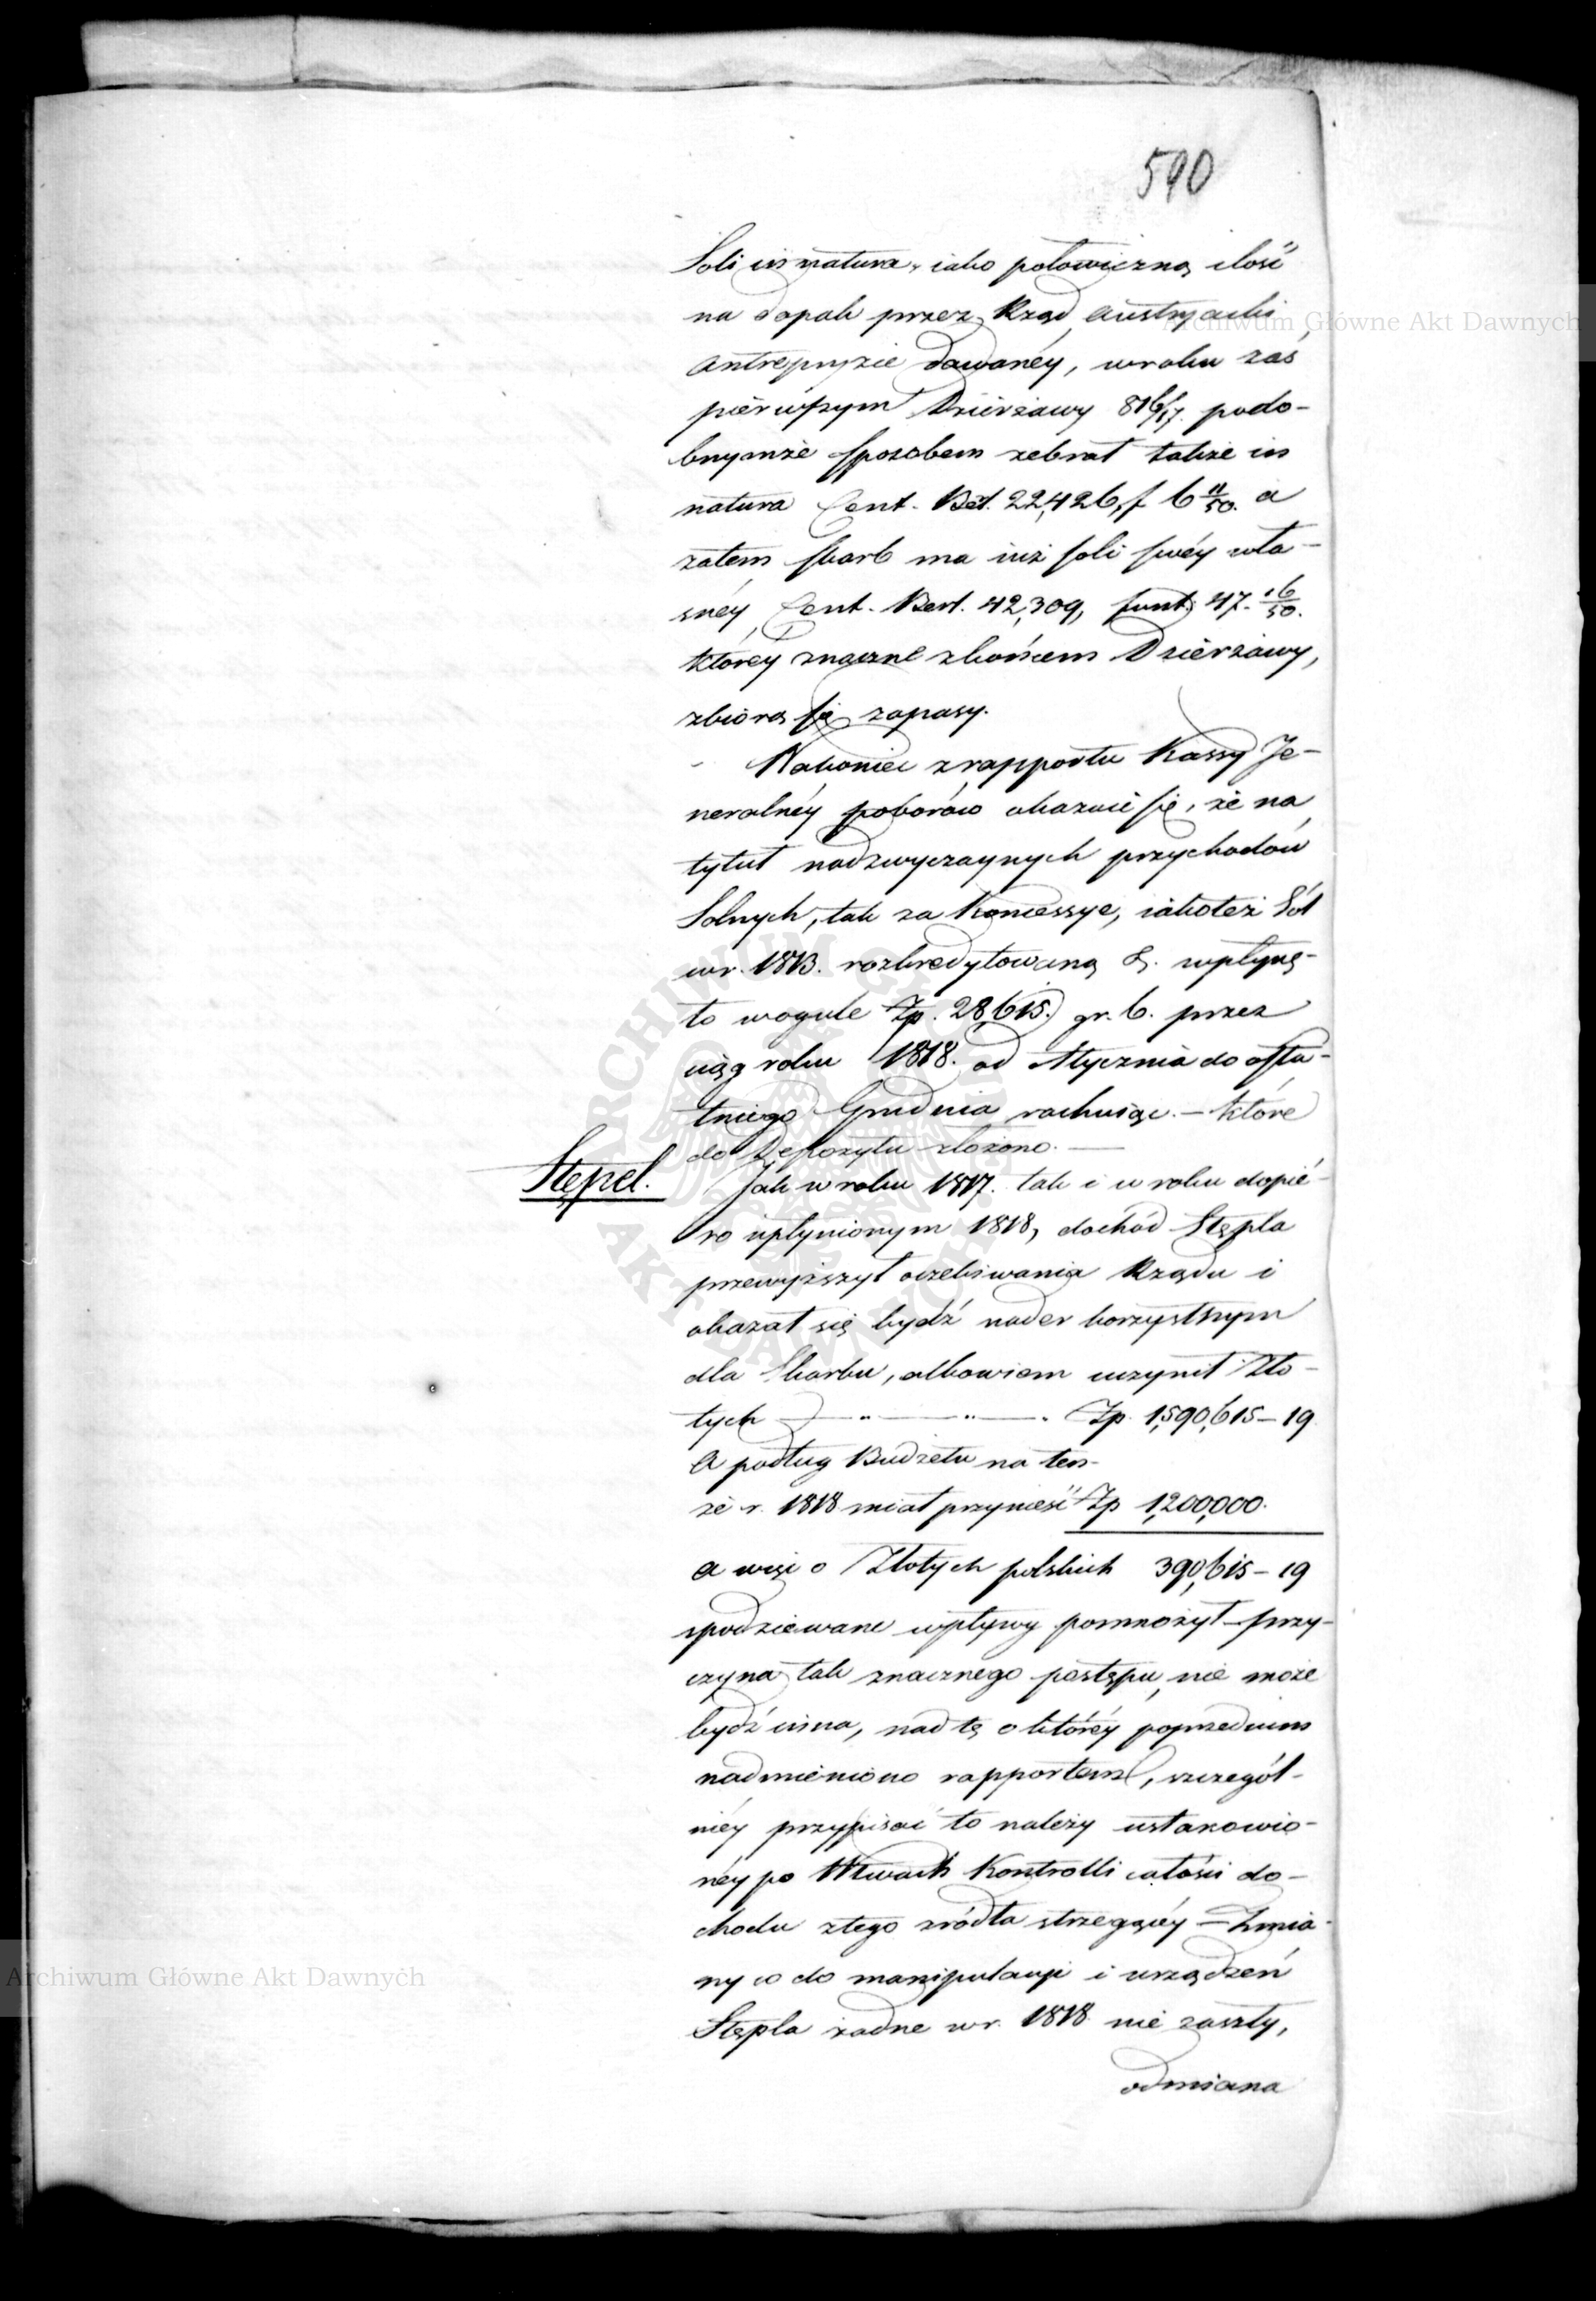 590
Soli in natura, iako połowiczną ilość
na dopak przez Rząd Austryacki
Antrepryzie dawanéy, w roku zaś
piérwszym Dzierżawy 816/17. podo-
bnymże sposobem zebrał także in
natura Cent. Berl. 22,426, f 6 11/50. a
zatem skarb ma iuż soli swéy wła-
snéy Cent. Berl. 42,309, funt. 47. 16/50.
któréy znaczne z końcem Dzierżawy,
zbiorą się zapasy.
Nakoniec z rapportu Kassy Je-
neralnéy poborów okazuie się, że na
tytuł nadzwyczaynych przychodów
Solnych, tak za Koncessye, iakoteż Sól
w r. 1813. rozkredytowaną &. wpłynę-
ło wogule Zp. 28,615. gr. 6. przez
ciąg roku 1818. od Stycznia do osta-
tniego Grudnia rachuiąc. — które
do Depozytu złożono. —
Stępel.
Jak w roku 1817. tak i w roku dopié-
ro upłynionym 1818, dochód Stępla
przewyższył oczekiwania Rządu i
okazał się bydź nader korzystnym
dla Skarbu, albowiem uczynił Zło-
tych — " — " — . Zp. 1,590,615 — 19
A podług Budżetu na ten-
że r. 1818 miał przynieść Zp 1,200,000.
a więc o Złotych polskich 390,615 — 19
spodziewane wpływy pomnożył — przy-
czyna tak znacznego postępu, nie może
bydź inna, nad tę o któréy poprzednim
nadmieniono rapportem, szczegól-
niéy przypisać to należy ustanowio-
néy po Wtwach Kontrolli całości do-
chodu z tego źródła strzegącéy — Zmia-
ny co do manipulacyi i urządzeń
Stępla żadne w r. 1818 nie zaszły,
odmiana
Archiwum Główne Akt Dawnych
Archiwum Główne Akt Dawnych
ARCHIWUM GŁÓWNE AKT DAWNYCH